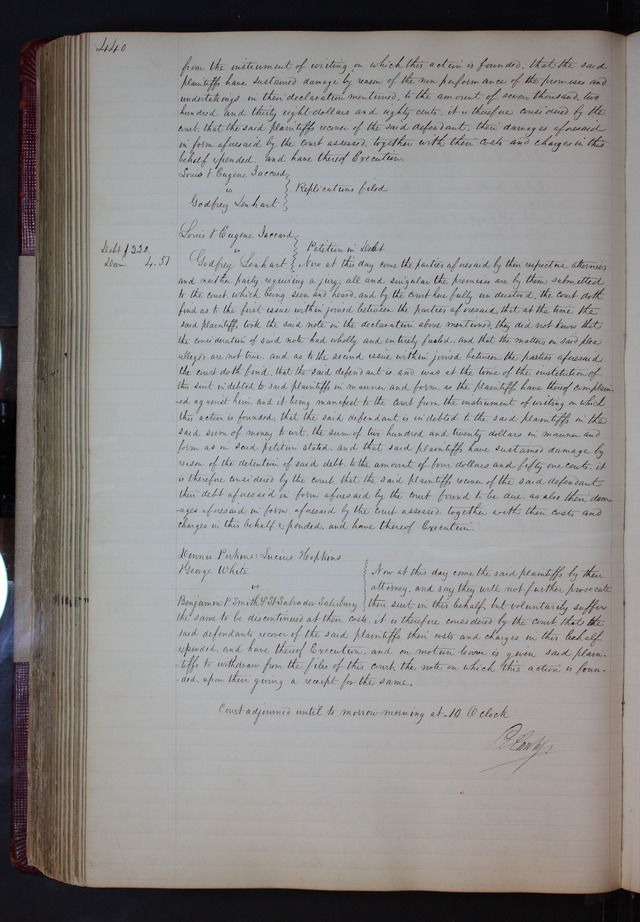 440
from the instrument of writing on which this action is founded, that the said
plaintiffs have sustained damage by reason of the non performance of the promises and
undertakings in their declaration mentioned, to the amount of seven thousand, two
hundred and thirty eight dollars and eighty cents, it is therefore considered by the
court, that the said plaintiffs recover of the said defendant, their damages aforesaid
in form aforesaid by the court assessed, together with their costs and charges in this
behalf expended and have thereof Execution.
Louis & Eugene Jaccard
vs
Godfrey Lenhart
Replications filed
Louis & Eugene Jaccard
vs
Godfrey Lenhart
Petition in Debt
Debt $220,
Dam 4.51
Now at this day come the parties aforesaid by their respective attornies
and neither party requiring a jury, all and singular the premises are by them submitted
to the court which being seen and heard, and by the court here fully understood, the court doth
find as to the first issue within joined between the parties aforesaid, that at the time the
said plaintiffs took the said note in the declaration above mentioned, they did not know that
the consideration of said note had wholly and entirely failed, and that the matters in said plea
alleged are not true. and as to the second issue within joined between the parties aforesaid
the court doth find, that the said defendant is and was at the time of the institution of
this suit indebted to said plaintiffs in manner and form as the plaintiffs have thereof complain
-ed against him and it being manifest to the court from the instrument of writing on which
this action is founded, that the said defendant is indebted to the said plaintiffs in the
said sum of money to wit: the sum of two hundred and twenty dollars in manner and
form as in said petition stated, and that said plaintiffs have sustained damage by
reason of the detention of said debt, to the amount of four dollars and fifty one cents, it
is therefore considered by the court, that the said plaintiffs recover of the said defendant
their debt aforesaid in form aforesaid by the court found to be due as also their dam
ages aforesaid in form aforesaid by the court assessed, together with their costs and
charges in this behalf expended, and have thereof Execution.
Dennis Perkins, Lucius Hopkins
& George White
vs
Benjamin P Smith & St Salvador Salisbury
Now at this day come the said plaintiffs by their
attorney, and say they will not further prosecute
their suit in this behalf, but voluntarily suffer
the same to be discontinued at their costs. it is therefore considered by the court, that the
said defendants recover of the said plaintiffs their costs and charges in this behalf
expended, and have thereof Execution. and on motion leave is given said plain-
tiffs to withdraw from the files of this court, the note on which this action is foun-
ded, upon their giving a receipt for the same.
Court adjourned until to morrow morning at 10 O clock